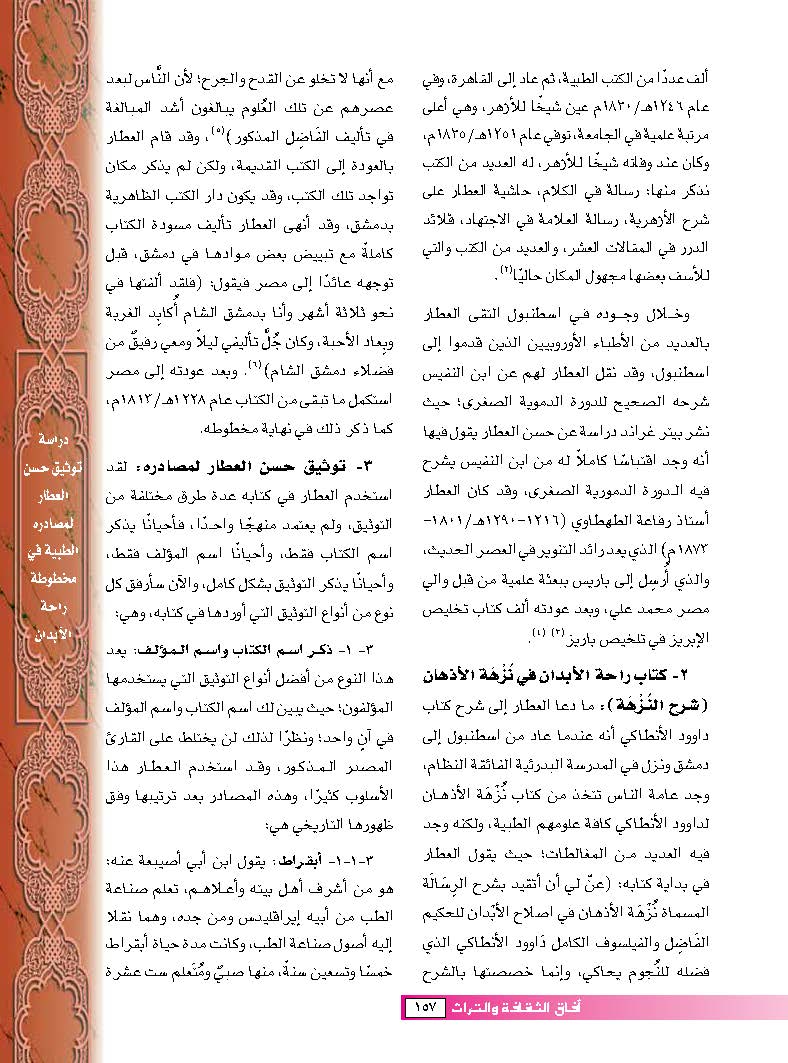 ألف عددًا من الكتب الطبية، ثم عاد إلى القاهرة، وفي
عام ١٢٤٦هـ/١٨٣٠م عين شيخًا للأزهر، وهي أعلى
مرتبة علمية في الجامعة، توفي عام ١٢٥١هـ/١٨٣٥م،
وكان عند وفاته شيخًا للأزهر، له العديد من الكتب
نذكر منها: رسالة في الكلام، حاشية العطار على
شرح الأزهرية، رسالة العلامة في الاجتهاد، قلائد
الدرر في المقالات العشر، والعديد من الكتب والتي
للأسف بعضها مجهول المكان حاليًا(٢).
وخـلال وجـوده فـي اسطنبول التقى العطار
بالعديد من الأطباء الأوروبيين الذين قدموا إلى
اسطنبول، وقد نقل العطار لهم عن ابن النفيس
شرحه الصحيح للدورة الدموية الصغرى؛ حيث
نشر بيتر غراند دراسة عن حسن العطار يقول فيها
أنه وجد اقتباسًا كاملاً له من ابن النفيس يشرح
فيه الـدورة الدمورية الصغرى، وقد كان العطار
أستاذ رفاعة الطهطاوي (١٢١٦–١٢٩٠هـ/١٨٠١–
١٨٧٣م) الذي يعد رائد التنوير في العصر الحديث،
والذي أُرسِل إلى باريس ببعثة علمية من قبل والي
مصر محمد علي، وبعد عودته ألف كتاب تخليص
الإبريز في تلخيص باريز(٣) (٤).
٢- كتاب راحة الأبدان في نُزْهَة الأذهان
(شرح النُّزْهَة): ما دعا العطار إلى شرح كتاب
داوود الأنطاكي أنه عندما عاد من اسطنبول إلى
دمشق ونزل في المدرسة البدرئية الفائقة النظام،
وجد عامة الناس تتخذ من كتاب نُزْهَة الأذهـان
لداوود الأنطاكي كافة علومهم الطبية، ولكنه وجد
فيه العديد مـن المغالطات؛ حيث يقول العطار
في بداية كتابه: (عنّ لي أن أتقيد بشرح الرِسَالَة
المسماة نُزْهَة الأذهان في اصلاح الأبْدان للحكيم
الفَاضِل والفيلسوف الكامل دَاوود الأنطاكي الذي
فضله للنُجوم يحاكي، وإنما خصصتها بالشرح
مع أنها لا تخلو عن القدح والجرح؛ لأن النَّاس لبعد
عصرهم عن تلك العُلوم يبالغون أشد المبالغة
في تأليف الفَاضِل المذكور)(٥)، وقد قام العطار
بالعودة إلى الكتب القديمة، ولكن لم يذكر مكان
تواجد تلك الكتب، وقد يكون دار الكتب الظاهرية
بدمشق، وقد أنهى العطار تأليف مسودة الكتاب
كاملةً مع تبييض بعض موادها في دمشق، قبل
توجهه عائدًا إلى مصر فيقول: (فلقد ألفتها في
نحو ثلاثة أشهر وأنا بدمشق الشام أُكابِد الغربة
وبِعاد الأحبة، وكان جُلَّ تأليفي ليلاً ومعي رفيقٌ من
فضلاء دمشق الشام)(٦). وبعد عودته إلى مصر
استكمل ما تبقى من الكتاب عام ١٢٢٨هـ/١٨١٣م،
كما ذكر ذلك في نهاية مخطوطه.
٣- توثيق حسن العطار لمصادره: لقد
استخدم العطار في كتابه عدة طرق مختلفة من
التوثيق، ولم يعتمد منهجًا واحـدًا، فأحيانًا يذكر
اسم الكتاب فقط، وأحيانًا اسم المؤلف فقط،
وأحيانًا يذكر التوثيق بشكل كامل، والآن سأرفق كل
نوع من أنواع التوثيق التي أوردها في كتابه، وهي:
٣- ١- ذكـر اسـم الكتاب واسـم المـؤلف: يعد
هذا النوع من أفضل أنواع التوثيق التي يستخدمها
المؤلفون؛ حيث يبين لك اسم الكتاب واسم المؤلف
في آنٍ واحد؛ ونظرًا لذلك لن يختلط على القارئ
المصدر المـذكـور، وقـد استخدم العـطار هذا
الأسلوب كثيرًا، وهذه المصادر بعد ترتيبها وفق
ظهورها التاريخي هي:
٣-١-١- أبقراط: يقول ابن أبي أصيبعة عنه:
هو من أشرف أهـل بيته وأعلاهـم، تعلم صناعة
الطب من أبيه إيراقليدس ومن جده، وهما نقلا
إليه أصول صناعة الطب، وكانت مدة حياة أبقراط،
خمسًا وتسعين سنةً، منها صبيٌ ومُتَعلم ست عشرة
دراسة
توثيق حسن
العطار
لمصادره
الطبية في
مخطوطة
راحة
الأبدان
آفاق الثقافة والتراث ١٥٧